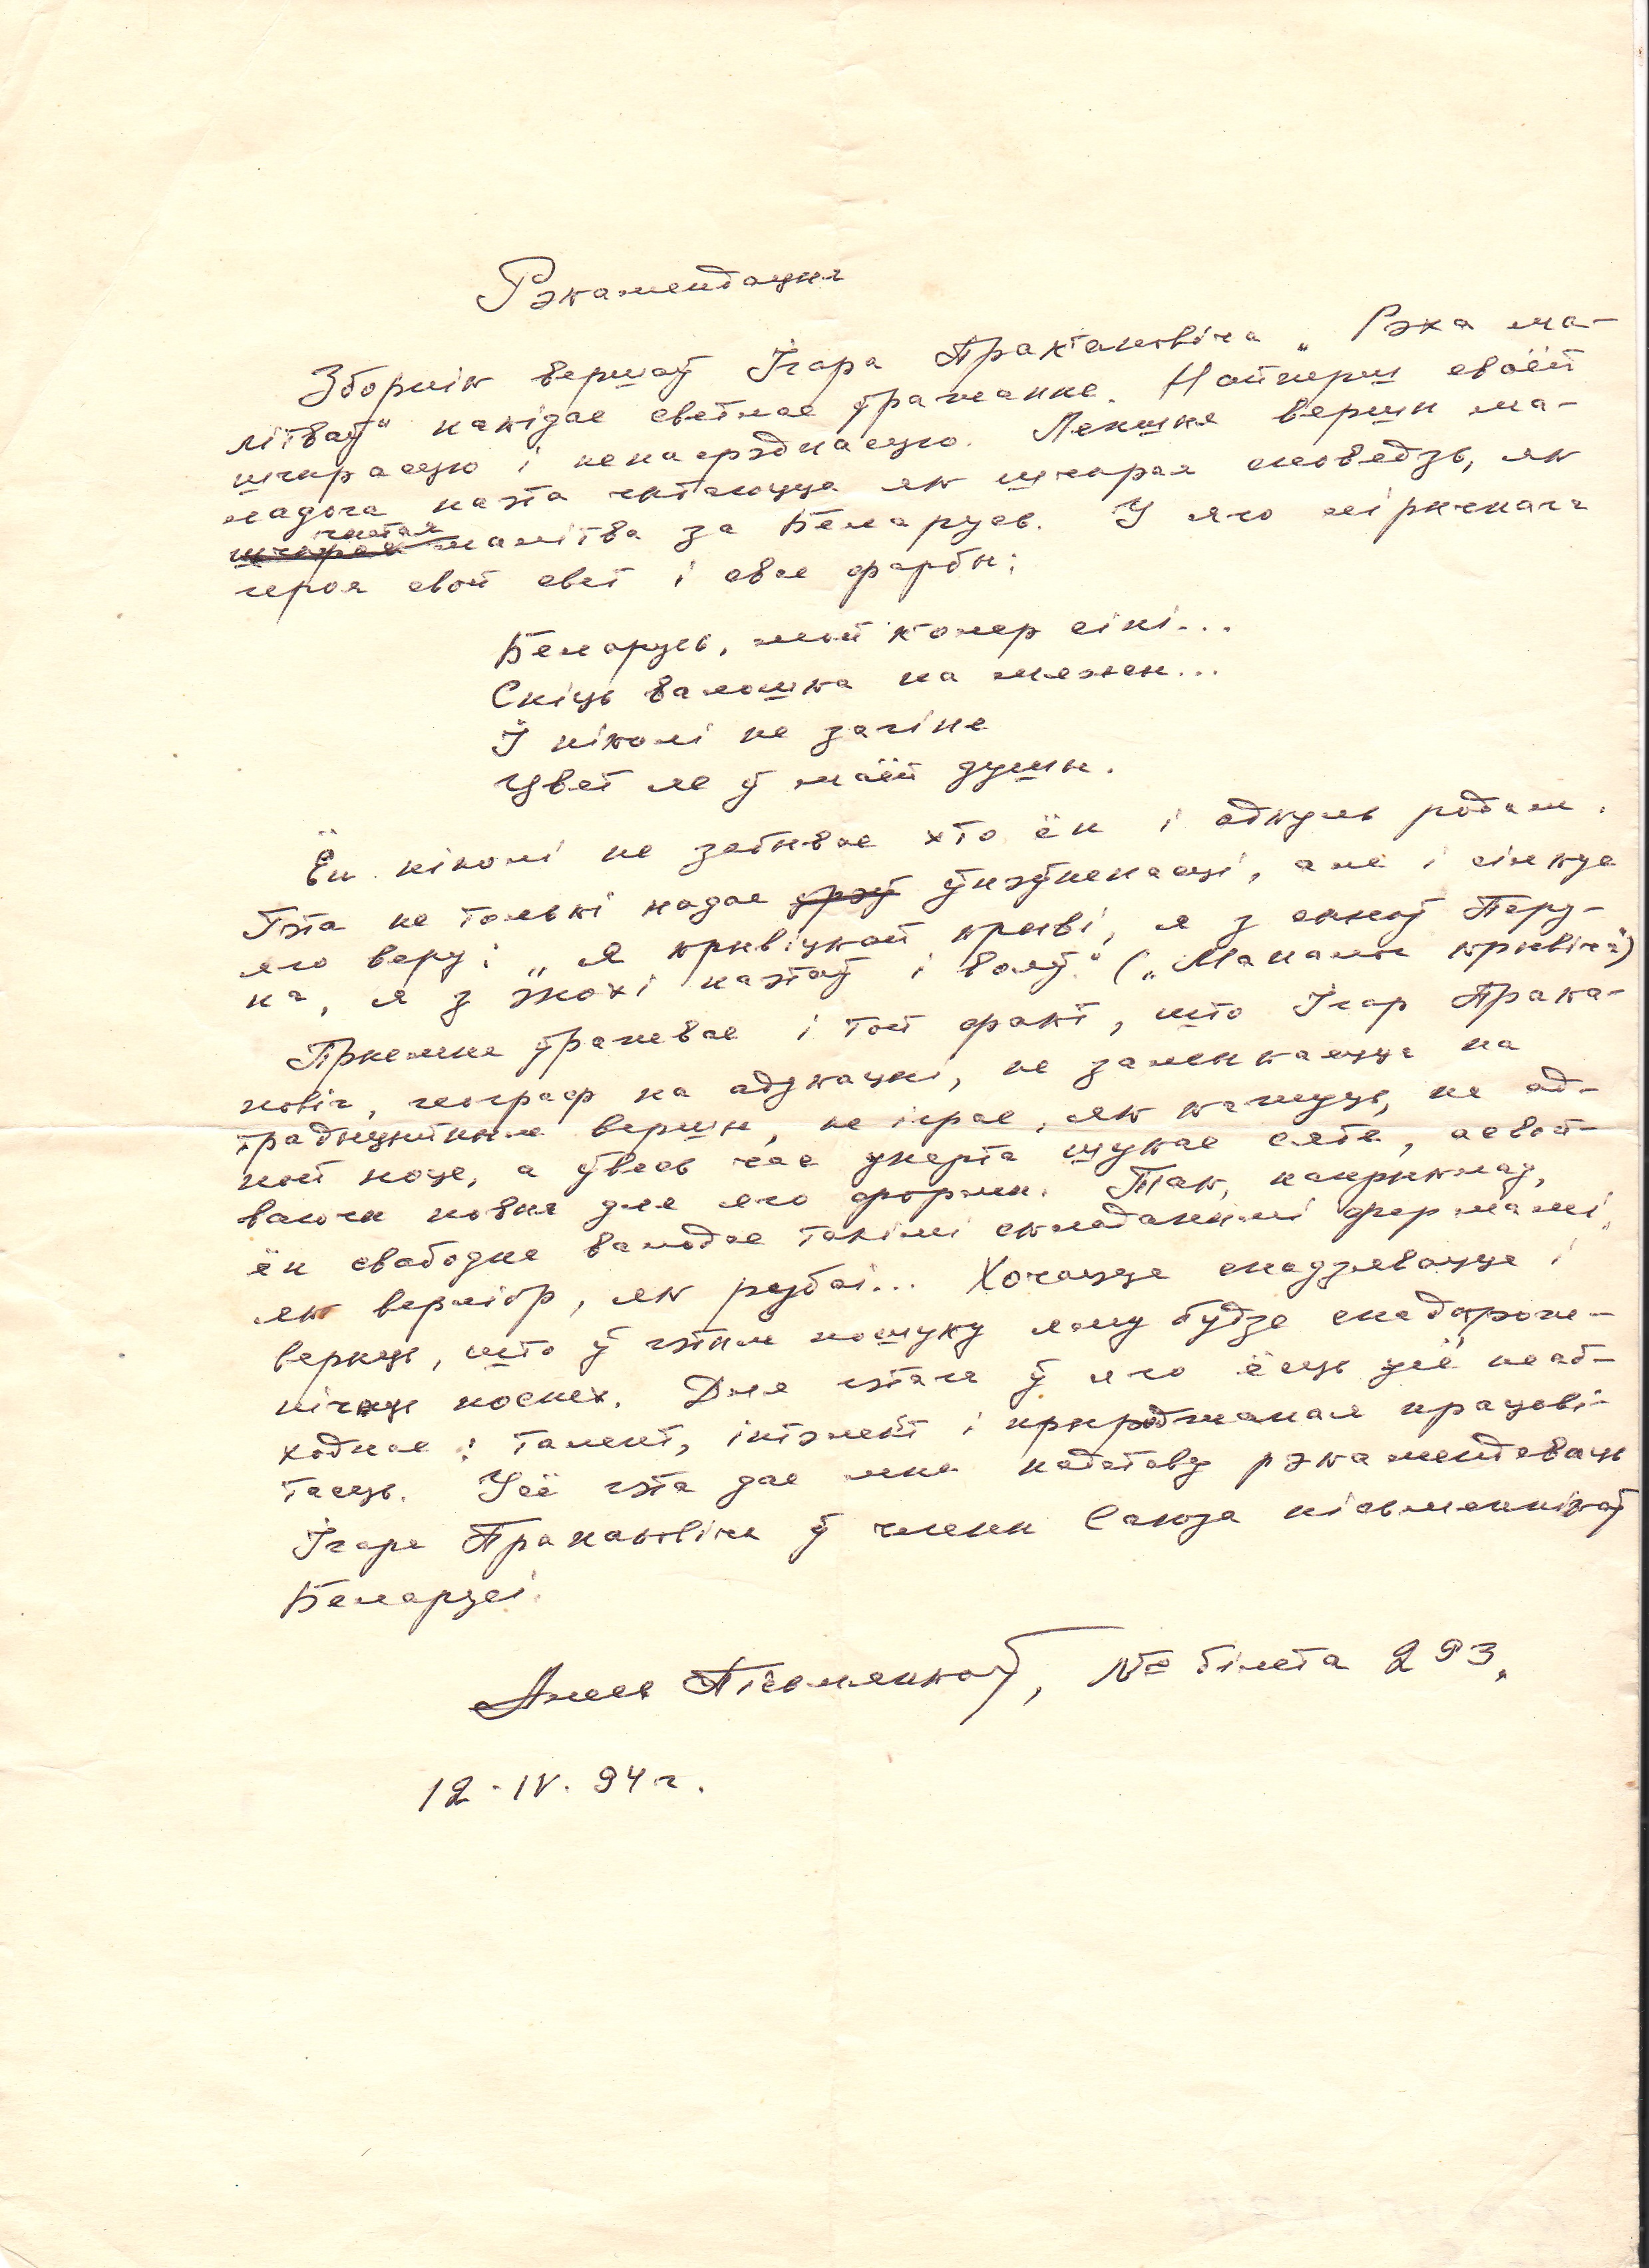 Рэкамендацыя
Зборнік вершаў Ігара Пракаповіча „Рэха ма-
літваў“ пакідае светлае ўражанне. Найперш сваёй
шчырасцю і непасрэднасцю. Лепшыя вершы ма-
ладога паэта чытаюцца як шчырая споведзь, як
чыстая
шчырая малітва за Беларусь. У яго лірычнага
героя свой свет і свае фарбы:
Беларусь, мой колер сіні...
Сніць валошка па мяжы...
І ніколі не загіне
Цвет яе ў маёй душы.
Ён ніколі не забывае хто ён і адкуль родам.
Гэта не толькі надае ўпэўненасці, але і сілкуе
яго веру: „Я крывіцкай крыві, я з сыноў Перу-
на, я з эпохі паэтаў і вояў.“ („Маналог крывіча“)
Прыемна ўражвае і той факт, што Ігар Прака-
повіч, географ па адукацыі, не замыкаецца на
традыцыйным вершы, не іграе, як кажуць, на ад-
ной ноце, а ўвесь час упарта шукае сябе, асвой-
ваючы новыя для яго формы. Так, напрыклад,
ён свабодна валодае такімі складанымі формамі,
як верлібр, як рубаі... Хочацца спадзявацца і
верыць, што ў гэтым пошуку яму будзе спадарож-
нічаць поспех. Для гэтага ў яго ёсць усё неаб-
ходнае: талент, інтэлект і прыроджаная працаві-
тасць. Усё гэта дае мне падставу рэкамендаваць
Ігара Пракаповіча ў члены Саюза пісьменнікаў
Беларусі.
Алесь Пісьмянкоў, № білета 293.
12.IV.94 г.